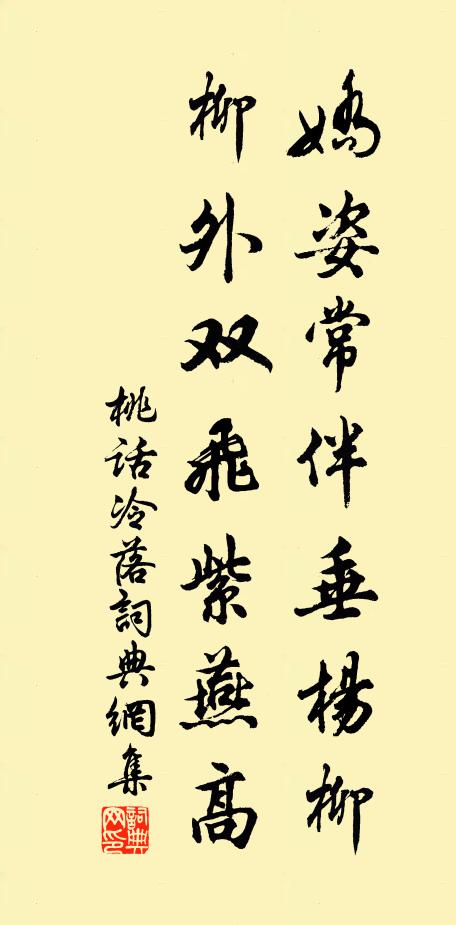 嬌姿常伴垂楊柳
柳外双飛紫燕高
桃话冷落詞典網集
詞典
网印